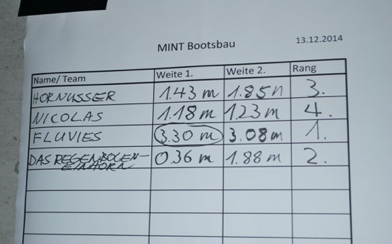 MINT Bootsbau 13.12.2014
Name/ Team Weite 1. Weite 2. Rang
HORNUSSER 1.43 m 1.85m 3.
NICOLAS 1.18 m 1.23 m 4.
FLUVIES 3.30 m 3.08m 1.
DAS REGENBOGEN- 0.36 m 1.88 m 2.
EINHORN